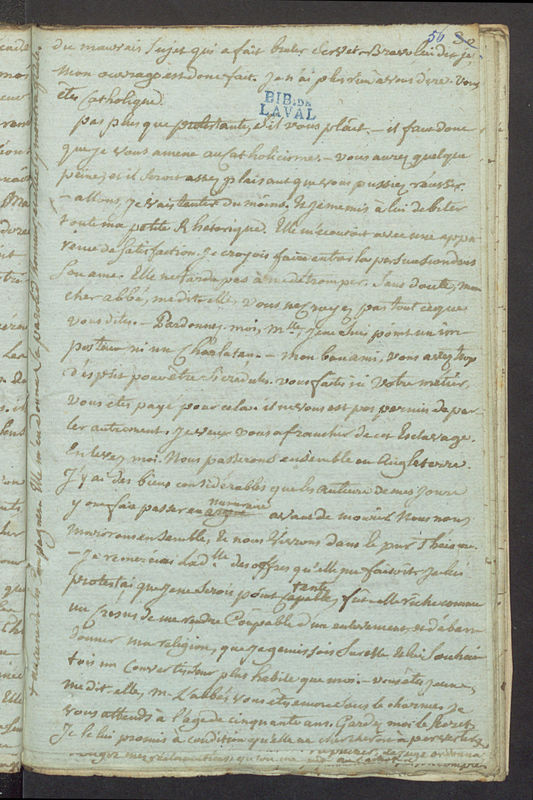 56
du mauvais sujet qui a fait bruler Servet. Bravo lui dis-je.
Mon ouvrage est donc fait. Je n'ai plus rien a vous dire. vous
etes Catholique.
BIB. DE
LAVAL
pas plus que protestante, s'il vous plait. — il faut donc
que je vous amene au Catholicisme. — vous aurez quelque
peine, et il seroit assez plaisant que vous pussiez réussir.
— allons, je vais tenter du moins. Et je me mis à lui debiter
toute ma petite Rhétorique. Elle m'écoutoit avec une appa-
rence de satisfaction. Je croyois faire entrer la persuasion dans
son ame. Elle ne tarda pas à me detromper. Sans doute, mon
cher abbé, me dit-elle, vous ne croyez pas tout ce que
vous dites. — Pardonnez-moi, Mlle, je ne suis point un im-
posteur ni un Charlatan. — mon bon ami, vous avez trop
d'esprit pour être si crédule. vous faites ici votre métier,
vous etes payé pour cela. il ne vous est pas permis de par-
ler autrement. Je veux vous affranchir de cet Esclavage.
Enlevez moi. Nous passerons ensemble en Angleterre.
J'y ai des biens considérables que les auteurs de mes jours
y ont fait passer en numeraire avant de mourir. Nous nous
marirons ensemble, et nous vivrons dans le pur Théisme.
— Je remerciai lad. lle des offres qu'elle me faisoit. Je lui
protestai que je ne serois point tenté, fut elle riche comme
un Cresus de me rendre Coupable d'un enlevement et d'aban-
donner ma religion, que je gemissois sur elle et lui souhai-
tois un Convertisseur plus habile que moi. — vous êtes jeune,
me dit-elle, M. L'abbé, vous êtes encore sous le charme. Je
vous attends à l'age de cinquante ans. Gardez moi le secret.
Je le lui promis à condition qu'elle ne chercheroit à pervertir